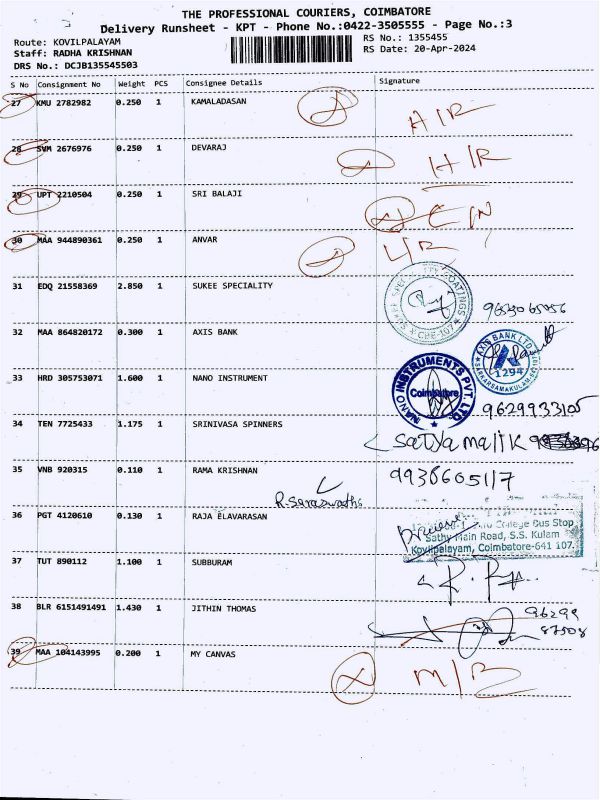 THE PROFESSIONAL COURIERS, COIMBATORE
Delivery Runsheet - KPT - Phone No.:0422-3505555 - Page No.:3
Route: KOVILPALAYAM RS No.: 1355455
Staff: RADHA KRISHNAN RS Date: 20-Apr-2024
DRS No.: DCJB135545503
S No Consignment No Weight PCS Consignee Details Signature
27 KMU 2782982 0.250 1 KAMALADASAN
28 SVM 2676976 0.250 1 DEVARAJ
29 UPT 2210504 0.250 1 SRI BALAJI
30 MAA 944890361 0.250 1 ANVAR
31 EDQ 21558369 2.850 1 SUKEE SPECIALITY
32 MAA 864820172 0.300 1 AXIS BANK
AXIS BANK LTD
1294
33 HRD 305753071 1.600 1 NANO INSTRUMENT
NANO INSTRUMENTS PVT. LTD.
Coimbatore
9629933105
34 TEN 7725433 1.175 1 SRINIVASA SPINNERS
Satya malik
35 VNB 920315 0.110 1 RAMA KRISHNAN
9938605117
R. Saraswathi
36 PGT 4120610 0.130 1 RAJA ELAVARASAN
College Bus Stop
Sathy Main Road, S.S. Kulam
Kovilpalayam, Coimbatore-641 107.
37 TUT 890112 1.100 1 SUBBURAM
38 BLR 6151491491 1.430 1 JITHIN THOMAS
96299
87508
39 MAA 104143995 0.200 1 MY CANVAS
M/B